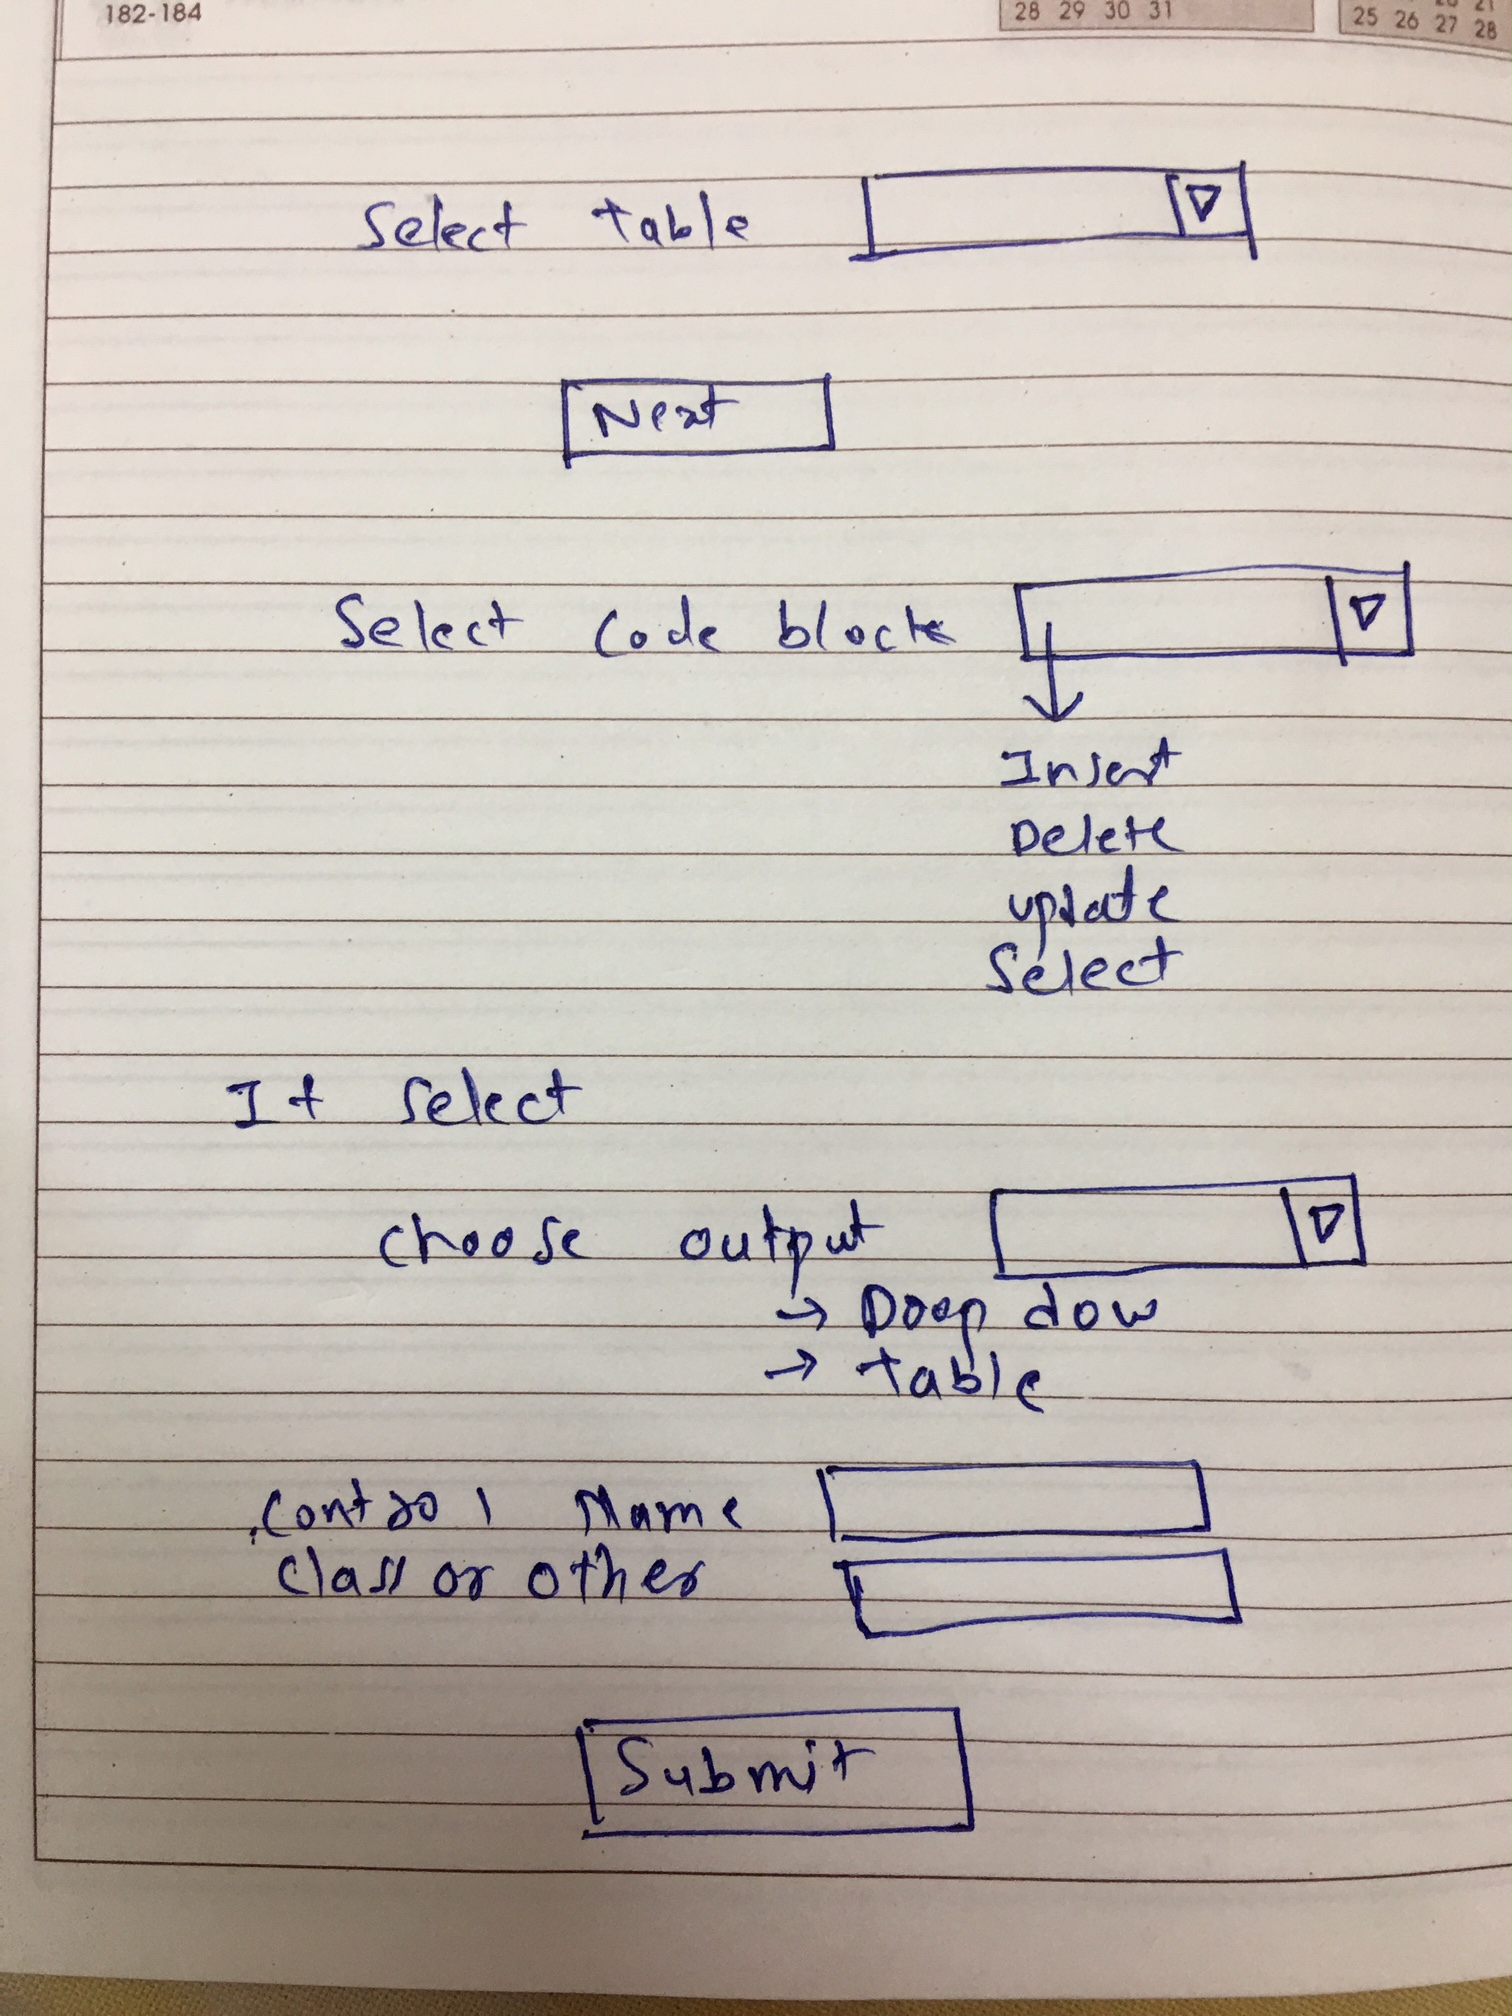 182-184
28 29 30 31
20 21
25 26 27 28
Select table
Next
Select Code block
Insert
Delete
update
Select
If select
choose output
→ Droop dow
→ table
Control Name
Class or other
Submit